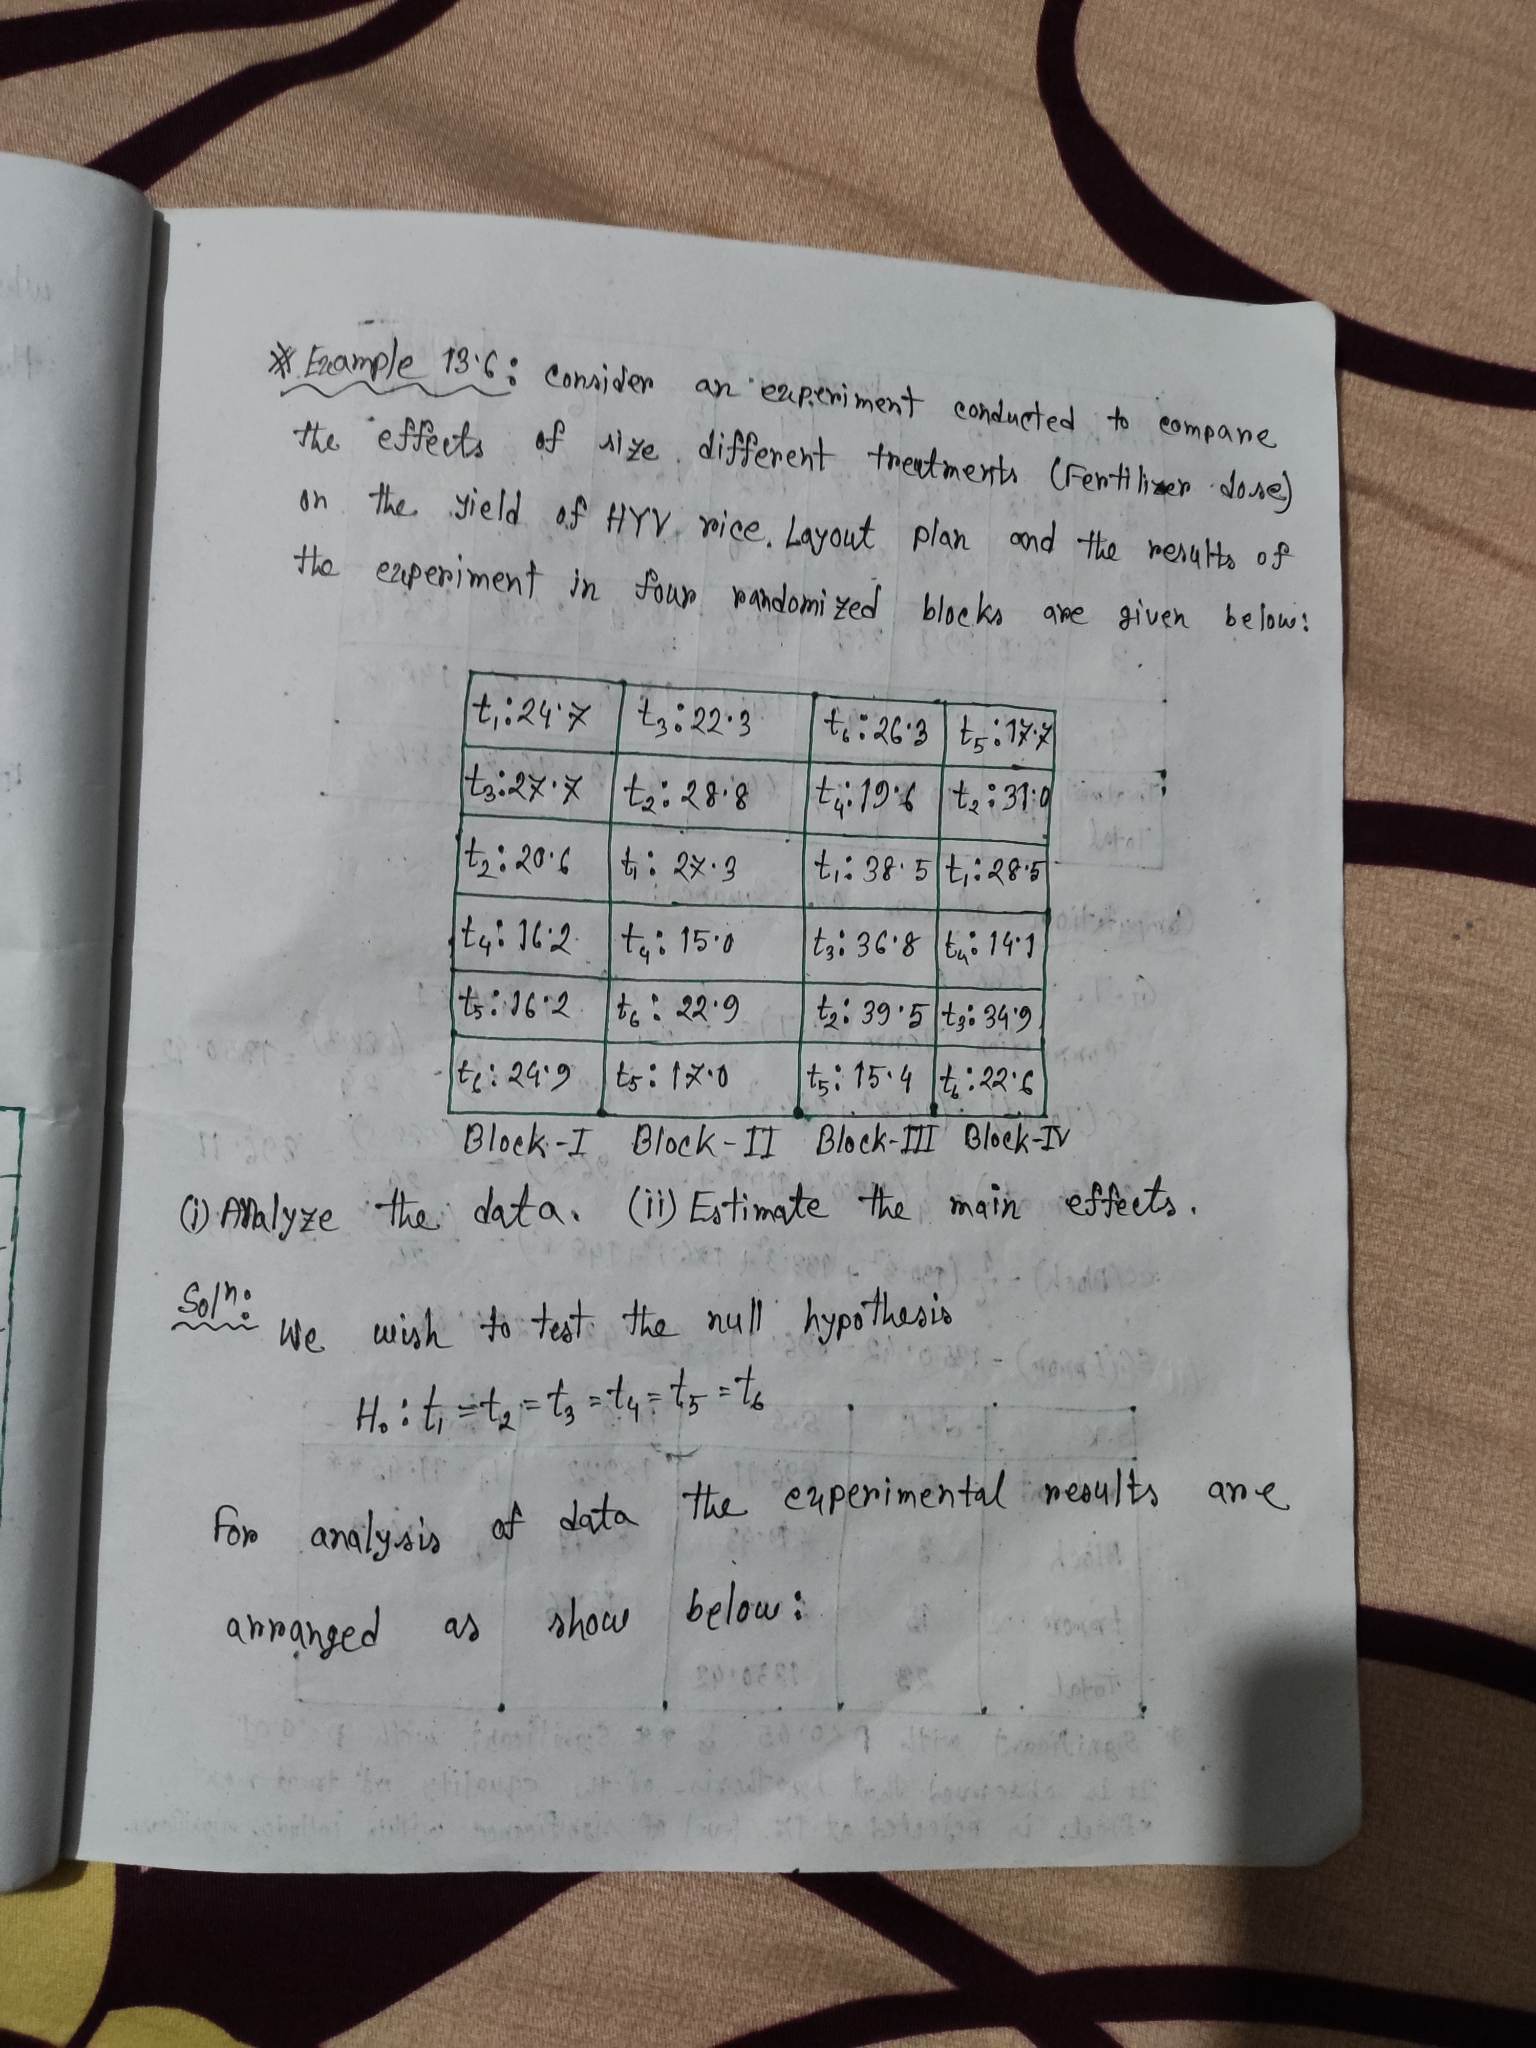 * Example 13.6: Consider an experiment conducted to compare
the effects of size different treatments (Fertilizer dose)
on the yield of HYV rice. Layout plan and the results of
the experiment in four randomized blocks are given below:
t₁: 24.7 t₃: 22.3 t₆: 26.3 t₅: 17.7
t₃: 27.7 t₂: 28.8 t₄: 19.6 t₂: 31.0
t₂: 20.6 t₁: 27.3 t₁: 38.5 t₁: 28.5
t₄: 16.2 t₄: 15.0 t₃: 36.8 t₄: 14.1
t₅: 16.2 t₆: 22.9 t₂: 39.5 t₃: 34.9
t₆: 24.9 t₅: 17.0 t₅: 15.4 t₆: 22.6
Block-I Block-II Block-III Block-IV
(i) Analyze the data. (ii) Estimate the main effects.
Solⁿ: We wish to test the null hypothesis
H₀: t₁ = t₂ = t₃ = t₄ = t₅ = t₆
For analysis of data the experimental results are
arranged as show below: